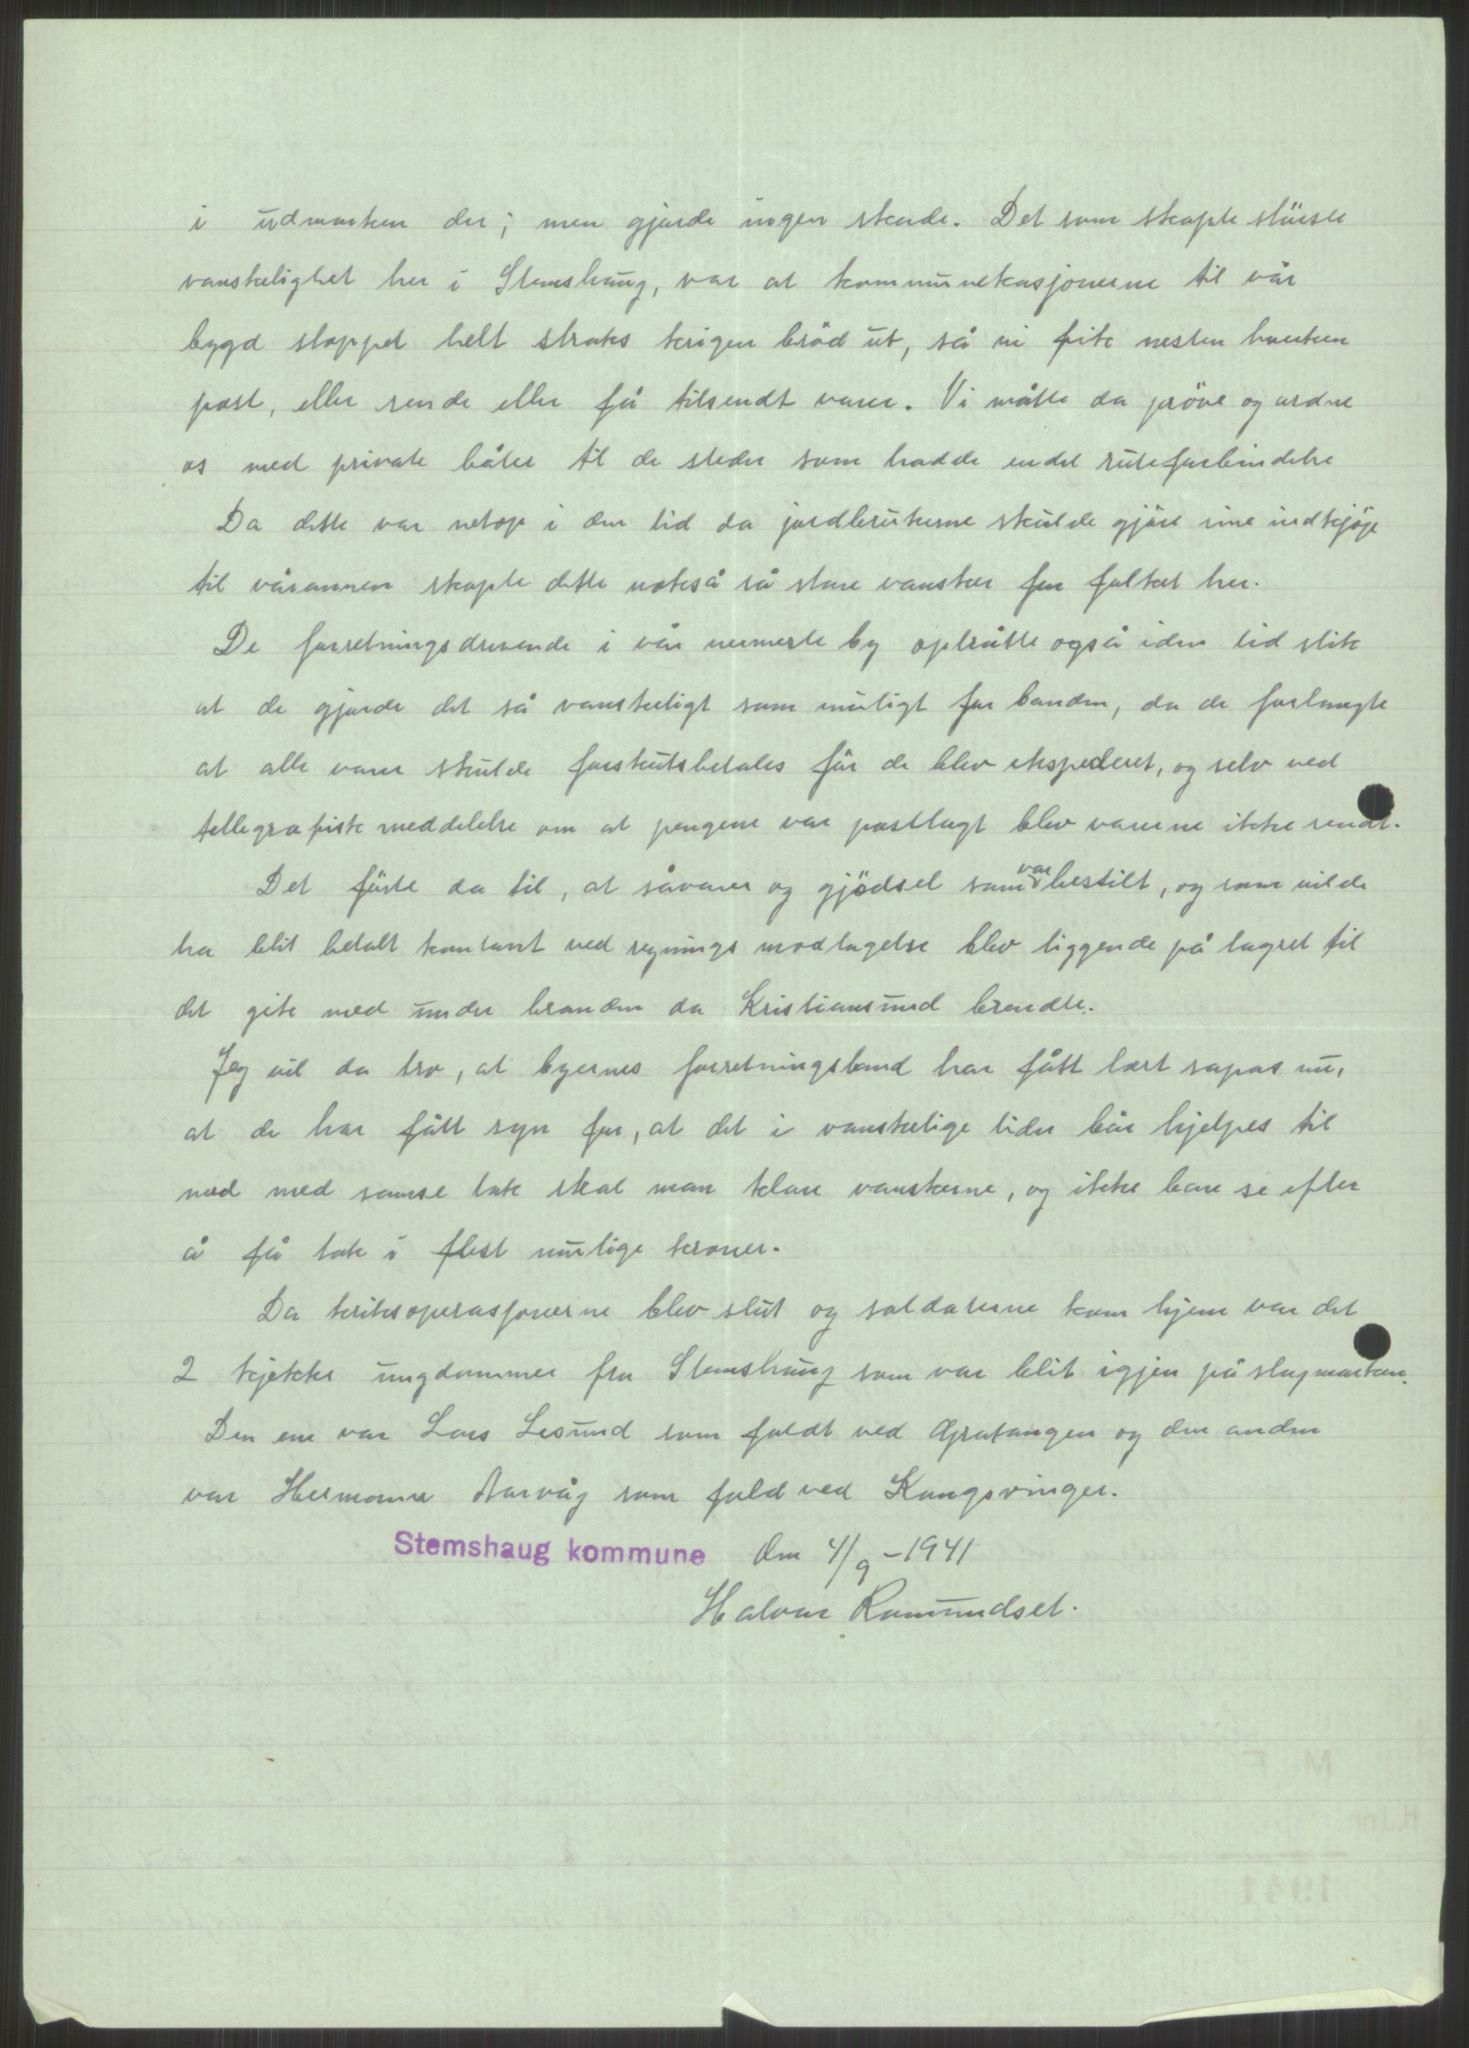 i udmarken der; men gjorde ingen skade. Det som skapte störste
vanskelighet her i Stemshaug, var at kommunekasjonerne til vår
bygd stoppet helt straks krigen bröd ut, så vi fik nesten hverken
post, eller sende eller få tilsendt varer. Vi måtte da pröve og ordne
os med private båter til de steder som hadde endel ruteforbindelse
Da dette var netop i den tid da jordbrukerne skulde gjöre sine indkjöp
til våronnen skapte dette nokså så store vansker for folket her.
De forretningsdrivende i vår nermeste by optrådte også i den tid slik
at de gjorde det så vanskeligt som muligt for bonden, da de forlangte
at alle varer skulde forskutsbetales för de blev ekspederet, og selv ved
tellegrafisk meddelelse om at pengene var postlagt blev varerne ikke sendt.
Det förte da til, at såvarer og gjödsel som var bestilt, og som vilde
ha blit betalt kontant ved regnings modtagelse blev liggende på lagret til
det gik med under branden da Kristiansund brendte.
Jeg vil da tro, at byernes forretningsband har fått lært såpas nu,
at de har fått syn for, at det i vanskelige tider bör hjelpes til
med samse tak skal man klare vanskerne, og ikke bare se efter
å få tak i flest mulige kroner.
Da kriksoperasjonerne blev slut og soldaterne kom hjem var det
2 kjekke ungdommer fra Stemshaug som var blit igjen på slagmarken.
Den ene var Lars Lesund som faldt ved Gratangen og den anden
var Hermann Aarvåg som fald ved Kongsvinger.
Stemshaug kommune den 4/9-1941
Halvar Romundset.
M F
1941